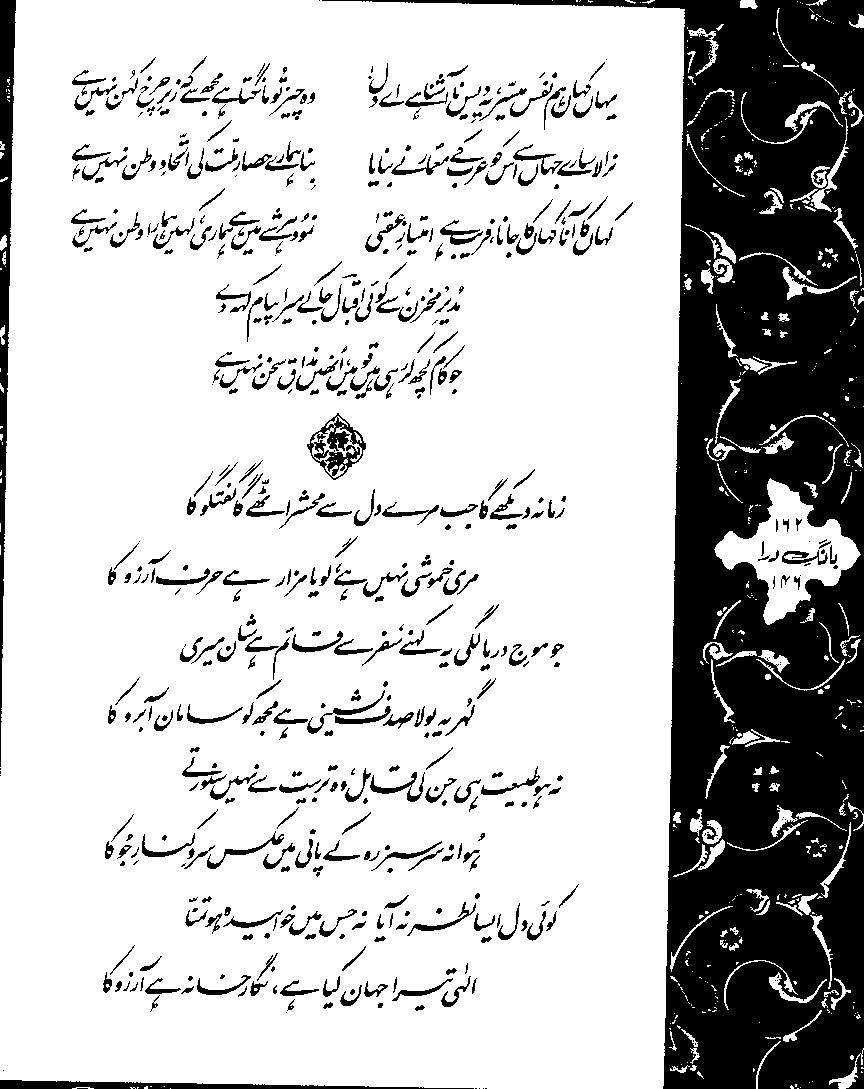 یہاں کہاں ہم نفس میسّر، یہ دیس نا آشنا ہے اے دل! وہ چیز تُو مانگتا ہے مجھ سے کہ زیرِ چرخِ کہن نہیں ہے
نرالا سارے جہاں سے اس کو عرب کے معمار نے بنایا بِنا ہمارے حصارِ ملّت کی اتّحادِ وطن نہیں ہے
کہاں کا آنا، کہاں کا جانا، فریب ہے امتیازِ عقبیٰ نمود ہر شے میں ہے ہماری، کہیں ہمارا وطن نہیں ہے
مُدیرِ مخزن سے کوئی اقبالؔ جا کے میرا پیام کہہ دے
جو کام کچھ کر رہی ہیں قومیں، اُنھیں مذاقِ سخن نہیں ہے
زمانہ دیکھے گا جب مرے دل سے محشر اٹھّے گا گفتگو کا
مری خموشی نہیں ہے، گویا مزار ہے حرفِ آرزو کا
جو موجِ دریا لگی یہ کہنے، سفر سے قائم ہے شان میری
گُہر یہ بولا صدف نشینی ہے مجھ کو سامان آبرو کا
نہ ہو طبیعت ہی جن کی قابل، وہ تربیت سے نہیں سنورتے
ہُوا نہ سرسبز رہ کے پانی میں عکس سروِ کنارِ جُو کا
کوئی دل ایسا نظر نہ آیا نہ جس میں خوابیدہ ہو تمنّا
الٰہی تیرا جہان کیا ہے، نگار خانہ ہے آرزو کا
۱۶۲
بانگِ درا
۱۴۶